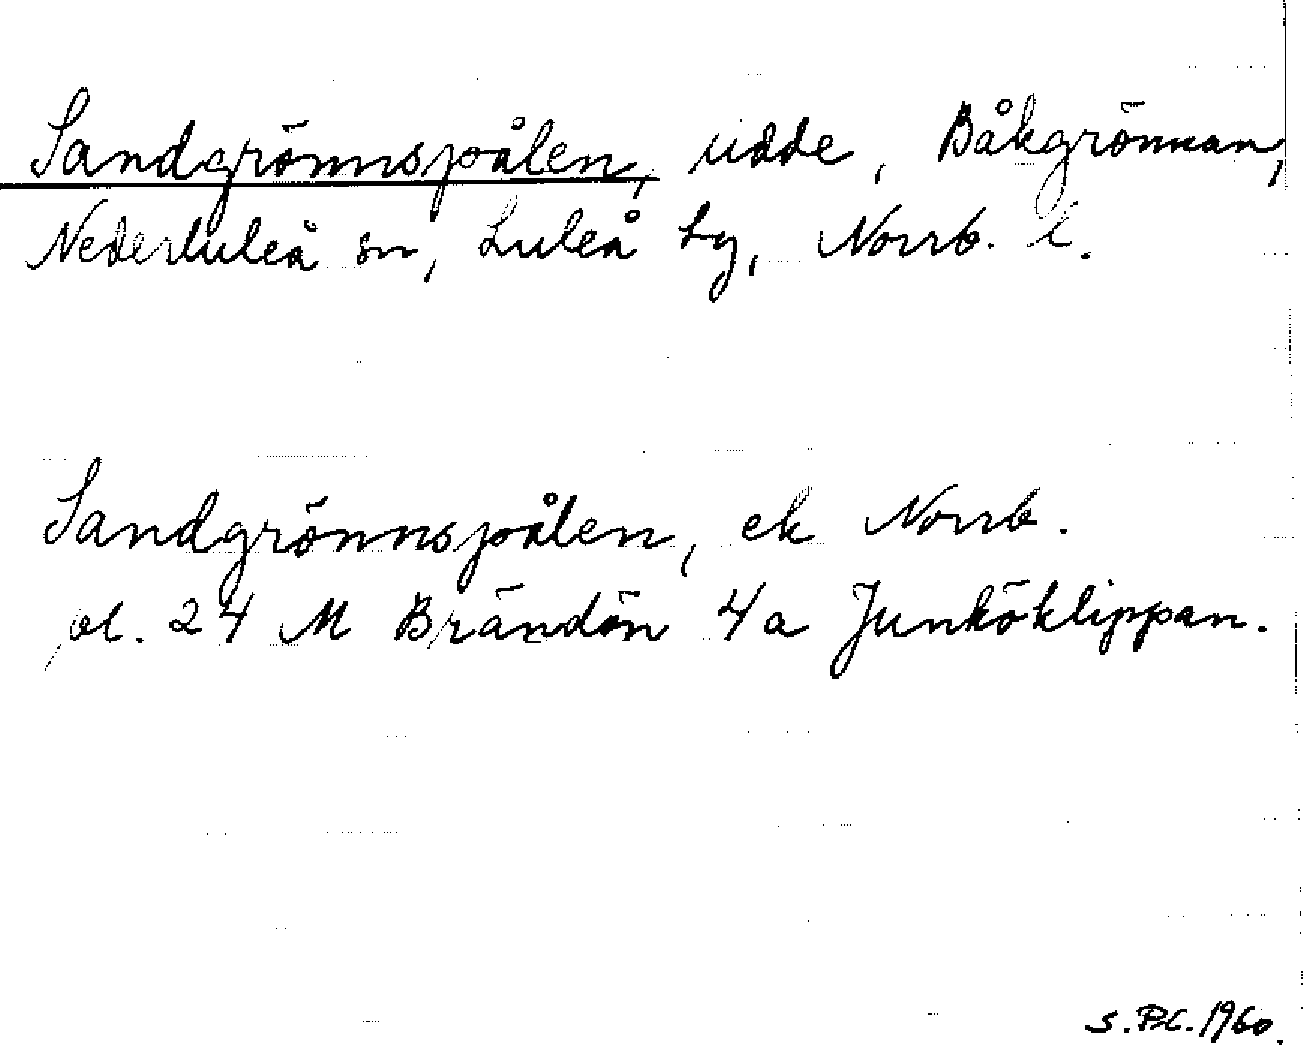 Sandgrönnspålen, udde, Båkgrönnan,
Nederluleå sn, Luleå tg, Norrb. l.
Sandgrönnspålen, ek Norrb.
pl. 24 M Brändön 4a Junköklippan.
S.P.C. 1960.